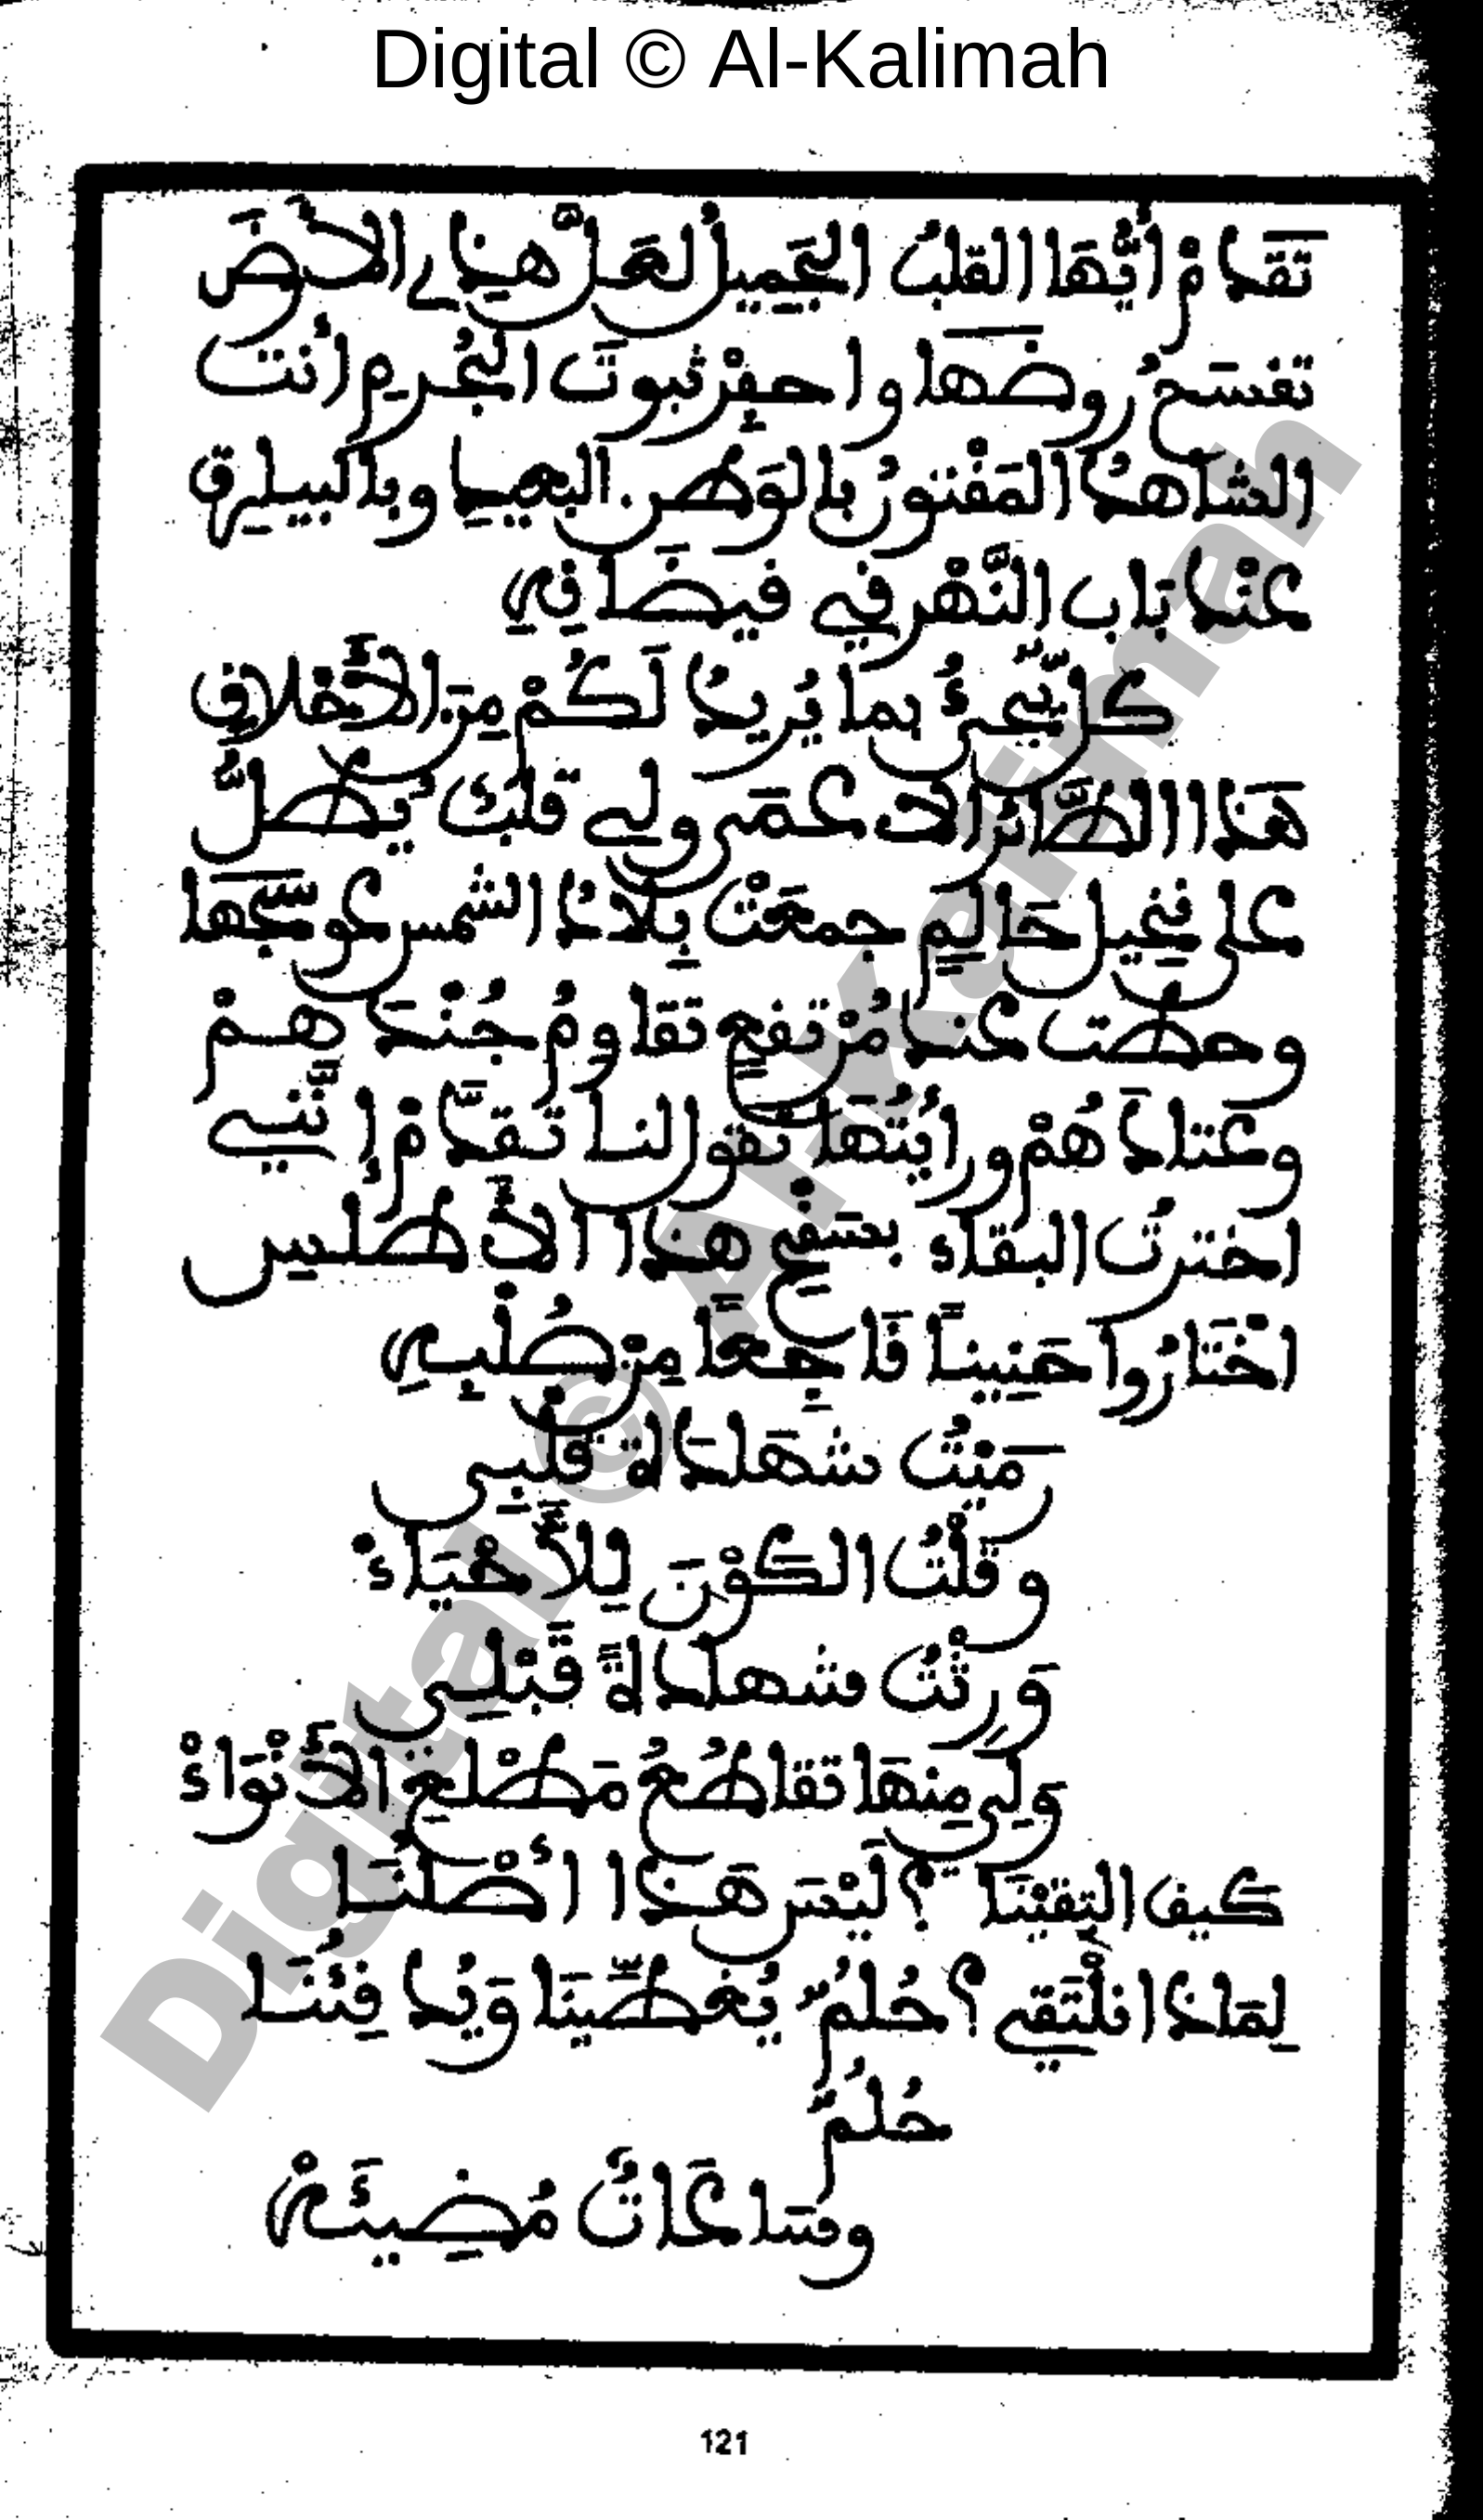 Digital © Al-Kalimah
تَقَدَّمْ أَيُّهَا القَلبُ الجَمِيل لَعَلَّ هذي الأرضَ
تَفسَحُ رَوضَها واحفِرْ ثبوتَ الجُرمِ أنتَ
الشاهدُ المَفْتونُ بالوَطن البعيدِ وبالبيلرق
عنْدَ بَابِ النَّهْر في فَيضَانِهِ
كل يَجِّيءُ بما يُريدُ لَكُمْ مِنَ الأَخلاقِ
هَذا الطَّائرُ الأَدعَمَى ولي قَلبٌ يُطلُّ
على نخيل حَالِمٍ جمعَتْ بِلادُ الشمس عوسجَها
وحطت عندَ مُرْتفعٍ تقاومُ جُنْدَهمْ
وعَتادَهُمْ ورأَيتُهَا تَقولُ لنا تَقدَّمْ إنَّني
اخترتُ البقاءَ بسَفحِ هذا الأَطلس
اخْتَارُوا حَنِيناً فَاجِعاً مِنْ صُلْبِهِ
مَنَتْ شَهَادَة قَلْبِي
وقُلْتُ الكَوْنَ لِلأَحْيَاءْ
وَرِثْتُ شهادةً قَبْلِي
ولي مِنهَا تقاطُعُ مَطْلعِ الأَنْوَاءْ
كيف التقيْنَا؟ لَيْسَ هَذا أَصْلنَا
لِمَاذا نلْتَقي؟ حُلمٌ يُغطِّينَا وَيُدفِئُنَا
حُلمٌ
وسَاعَاتٌ مُضِيئَهْ
121
Digital © Al-Kalimah